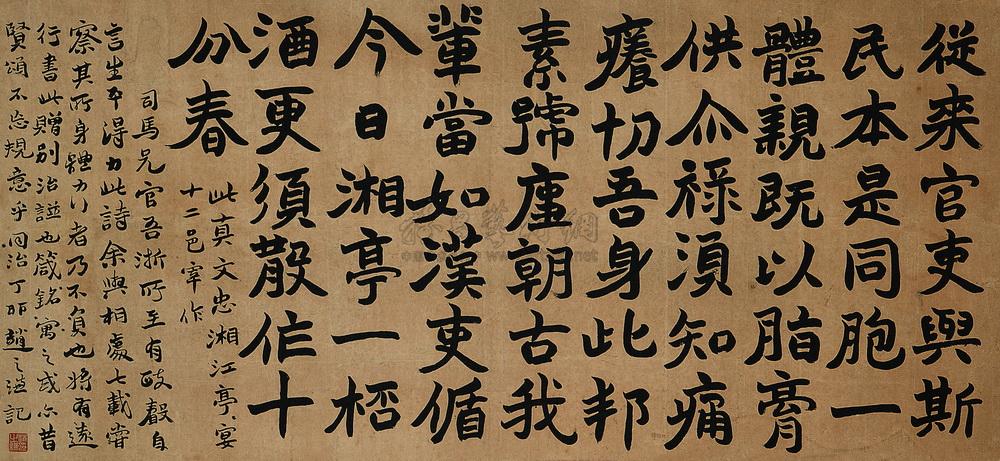 從来官吏與斯
民本是同胞一
體親既以脂膏
供尒祿湏知痛
癢切吾身此邦
素號唐朝古我
輩當如漢吏循
今日湘亭一桮
酒更須散作十
分春
此真文忠湘江亭、宴
十二邑宰作
司馬兄官吾浙所至有政聲自
言生平得力此詩余與相處七載嘗
察其所身體力行者乃不負也將有遠
行書此贈別治譜也箴銘寓之或亦昔
賢頌不忘規意乎同治丁卯趙之謙記